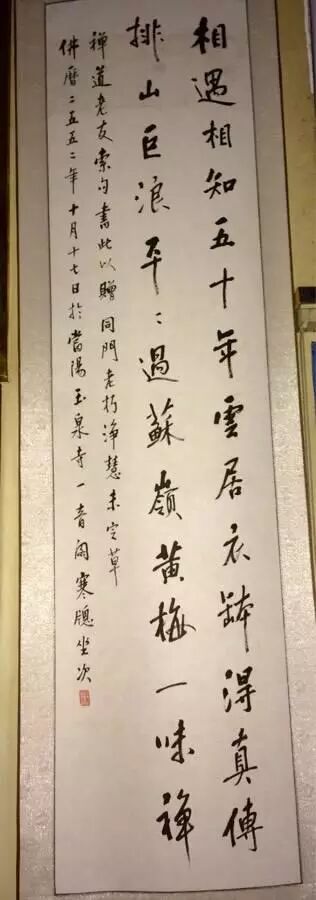 相遇相知五十年雲居衣鉢得真傳
排山巨浪平平過蘇嶺黃梅一味禪
禪道老友索句書此以贈同門老朽淨慧未定草
佛曆二五五二年十月十七日於當陽玉泉寺一音閣寒牕坐次